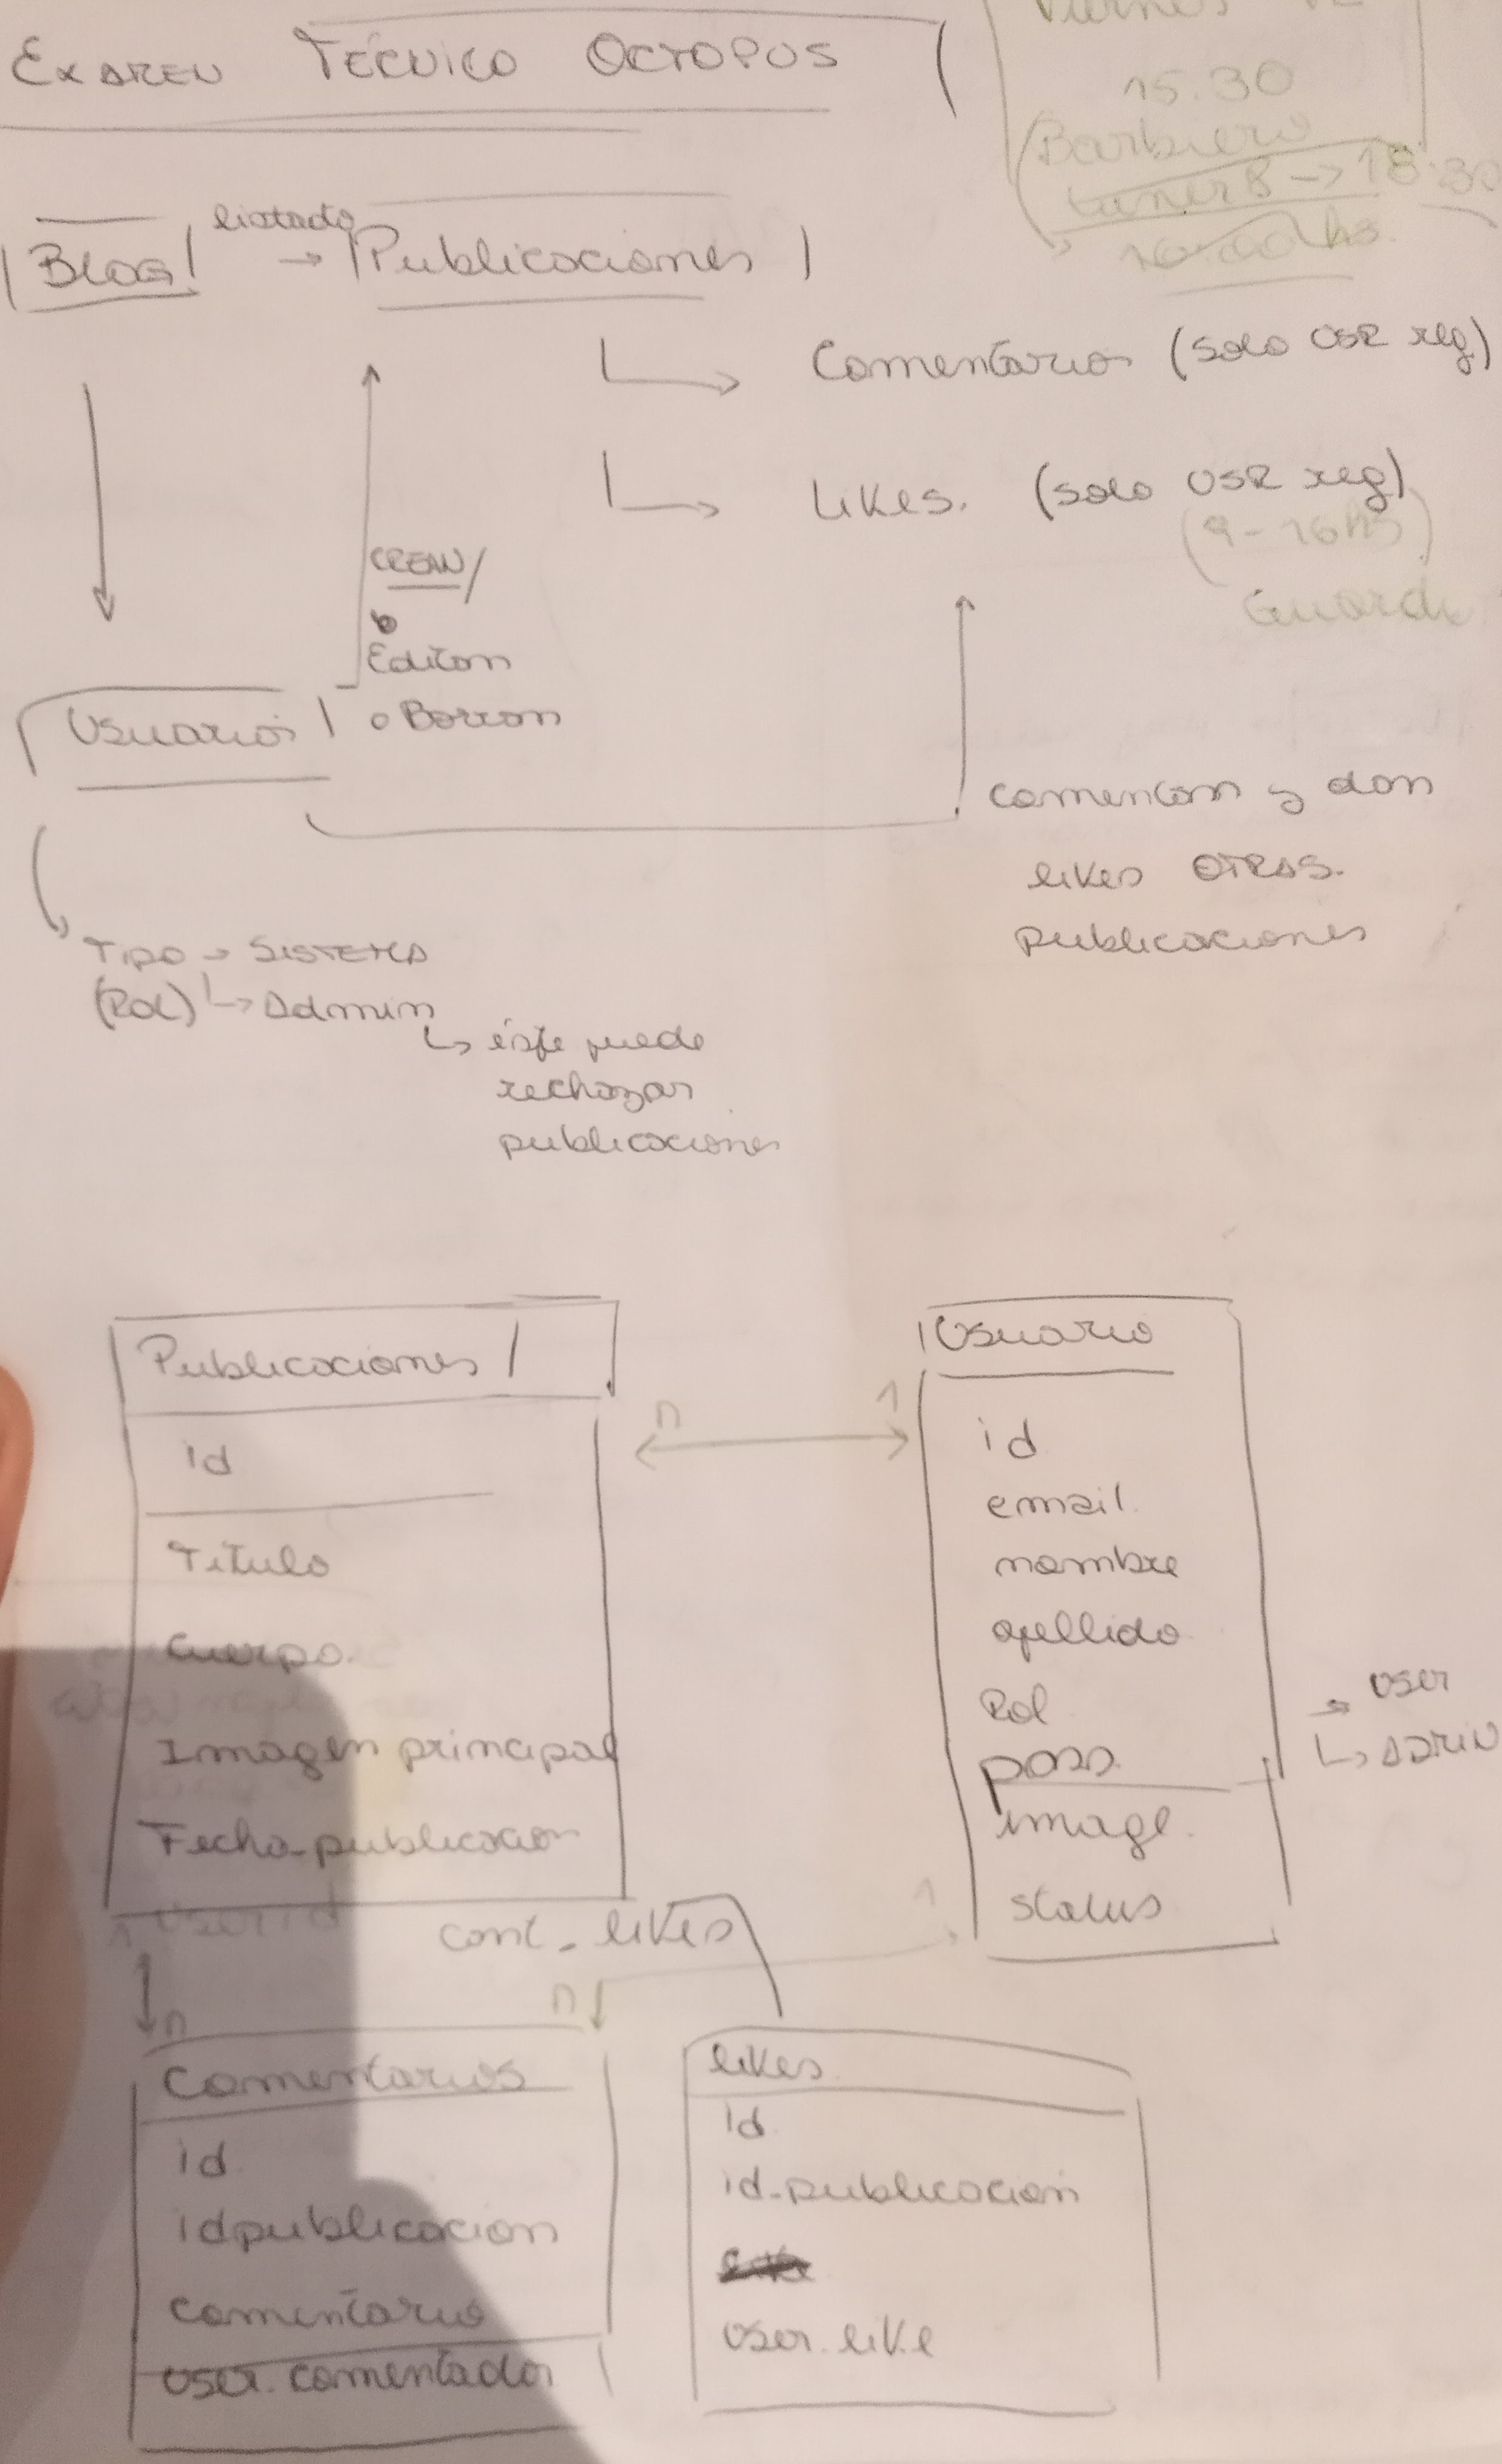 EXAMEN TÉCNICO OCTOPUS
Viernes
15.30
Barbiero
16:00 hs.
BLOG listado → Publicaciones
Comentarios (solo USR reg)
Likes. (solo USR reg)
(9-16hs)
CREAN/
Editan
o Borran
Usuarios
comentan y dan
likes OTRAS.
publicaciones
TIPO → SISTEMA
(ROL) ↳ Admin
↳ éste puede
rechazar
publicaciones
Publicaciones
id
Título
Cuerpo.
Imagen principal
Fecha_publicacion
user id
cant_likes
n 1
Usuario
id
email.
nombre
apellido
Rol
pass
image.
status
→ user
↳ ADMIN
1
n
1
n
Comentarios
id
idpublicacion
comentario
user.comentador
likes
id
id_publicacion
user.like